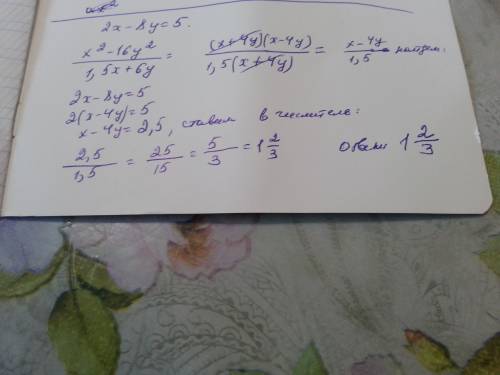 2x - 8y = 5.
x² - 16y² / 1,5x + 6y = (x + 4y)(x - 4y) / 1,5(x + 4y) = x - 4y / 1,5 найдем:
2x - 8y = 5
2(x - 4y) = 5
x - 4y = 2,5, ставим в числитель:
2,5 / 1,5 = 25 / 15 = 5 / 3 = 1 2/3 Ответ 1 2/3